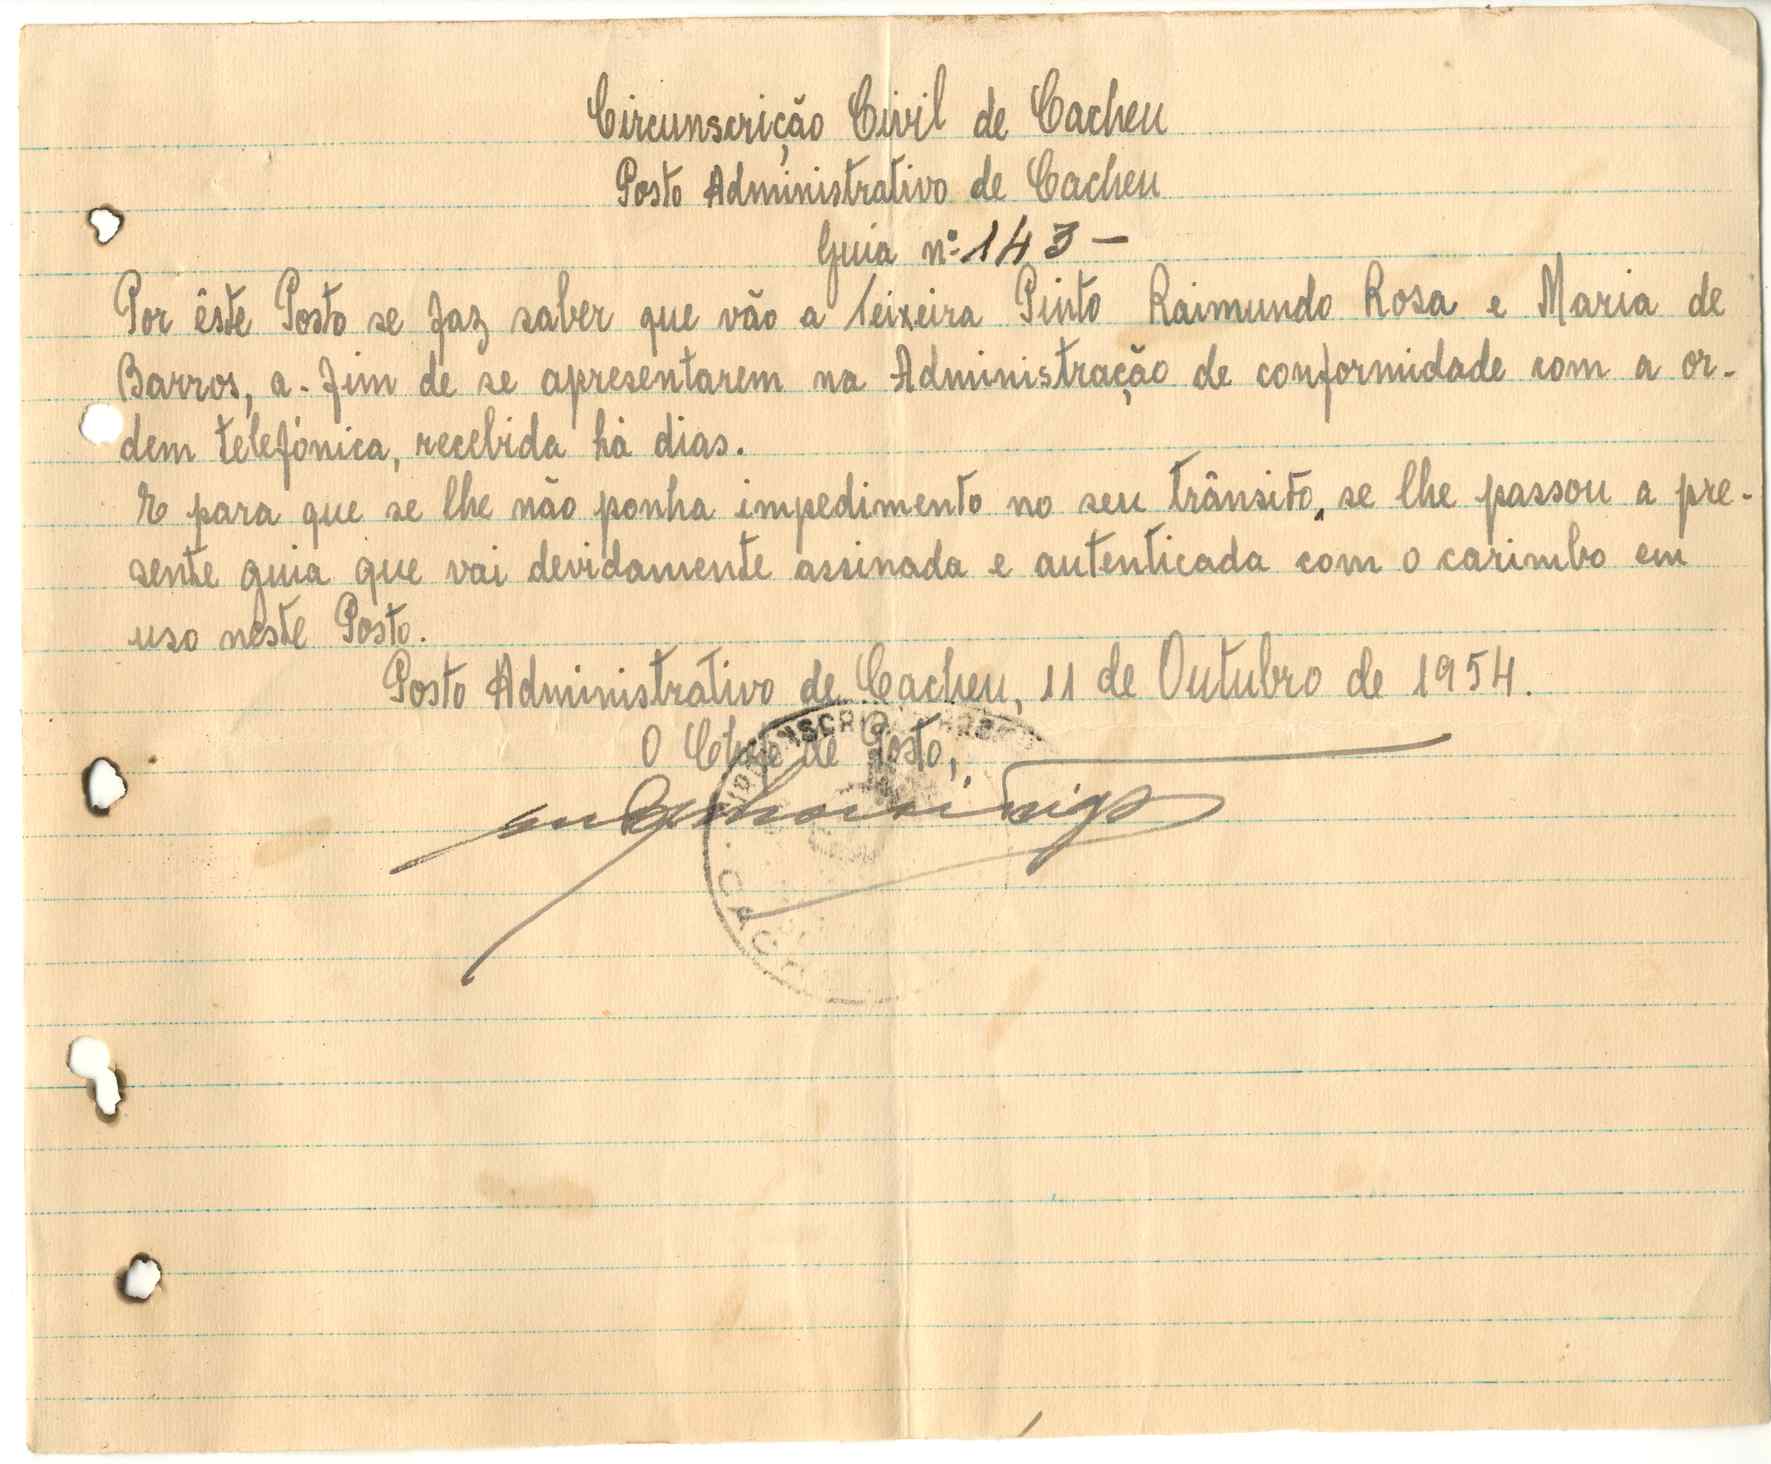 Circunscrição Civil de Cacheu
Posto Administrativo de Cacheu
Guia nº 143 -
Por êste Posto se faz saber que vão a Teixeira Pinto Raimundo Rosa e Maria de
Barros, a-fim de se apresentarem na Administração de conformidade com a or-
dem telefónica, recebida há dias.
E para que se lhe não ponha impedimento no seu trânsito, se lhe passou a pre-
sente guia que vai devidamente assinada e autenticada com o carimbo em
uso neste Posto.
Posto Administrativo de Cacheu, 11 de Outubro de 1954.
O Chefe de Posto,